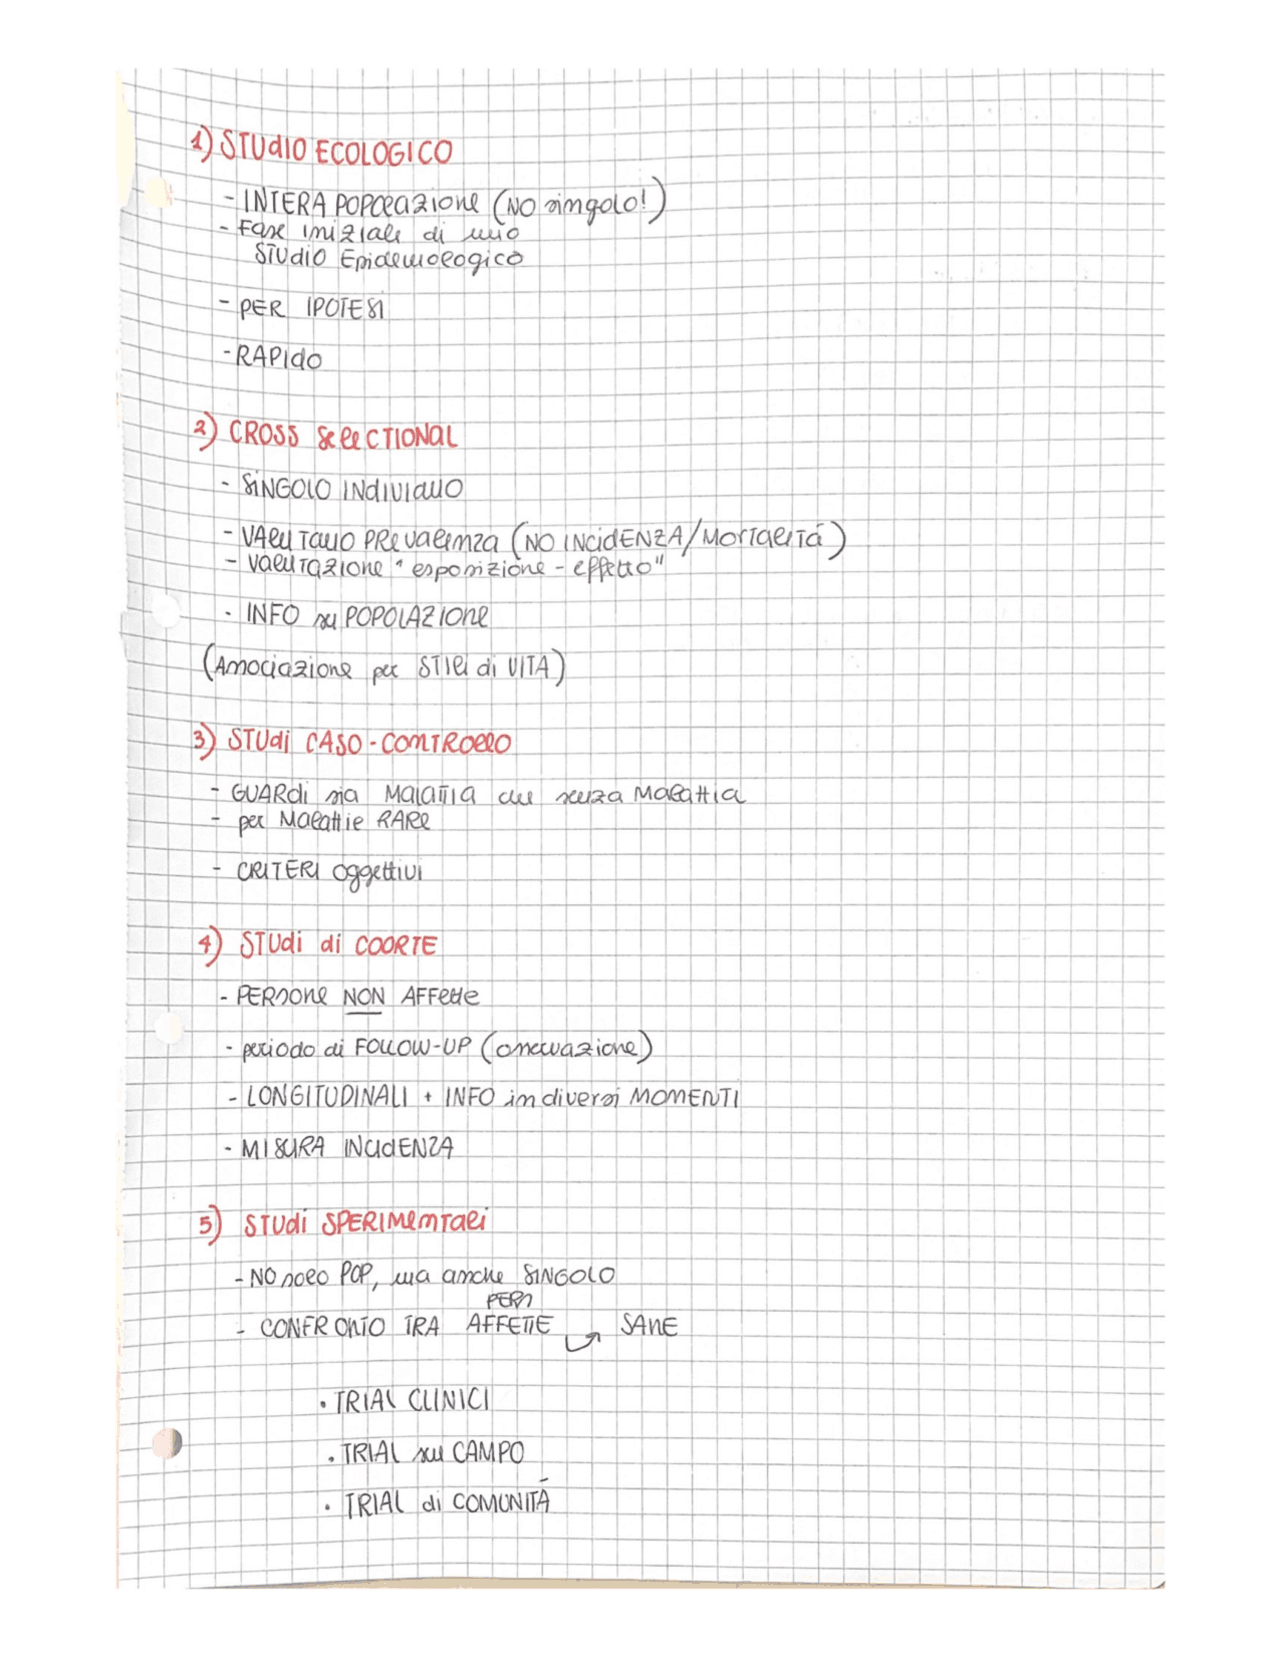 1) STUDIO ECOLOGICO
- INTERA POPOLAZIONE (NO singolo!)
- FASE INIZIALE di uno
STUDIO Epidemiologico
- PER IPOTESI
- RAPIDO
2) CROSS SELECTIONAL
- SINGOLO INDIVIDUO
- VALUTANO PREVALENZA (NO INCIDENZA/MORTALITÁ)
- VALUTAZIONE "esposizione - effetto"
- INFO su POPOLAZIONE
(Associazione per STILI di VITA)
3) STUDI CASO - CONTROLLO
- GUARDI sia MALATTIA che senza MALATTIA
- per MALATTIE RARE
- CRITERI oggettivi
4) STUDI di COORTE
- PERSONE NON AFFETTE
- periodo di FOLLOW-UP (osservazione)
- LONGITUDINALI + INFO in diversi MOMENTI
- MISURA INCIDENZA
5) STUDI SPERIMENTALI
- NO solo POP, ma anche SINGOLO
PERS
- CONFRONTO TRA AFFETTE SANE
• TRIAL CLINICI
• TRIAL sul CAMPO
• TRIAL di COMUNITÁ